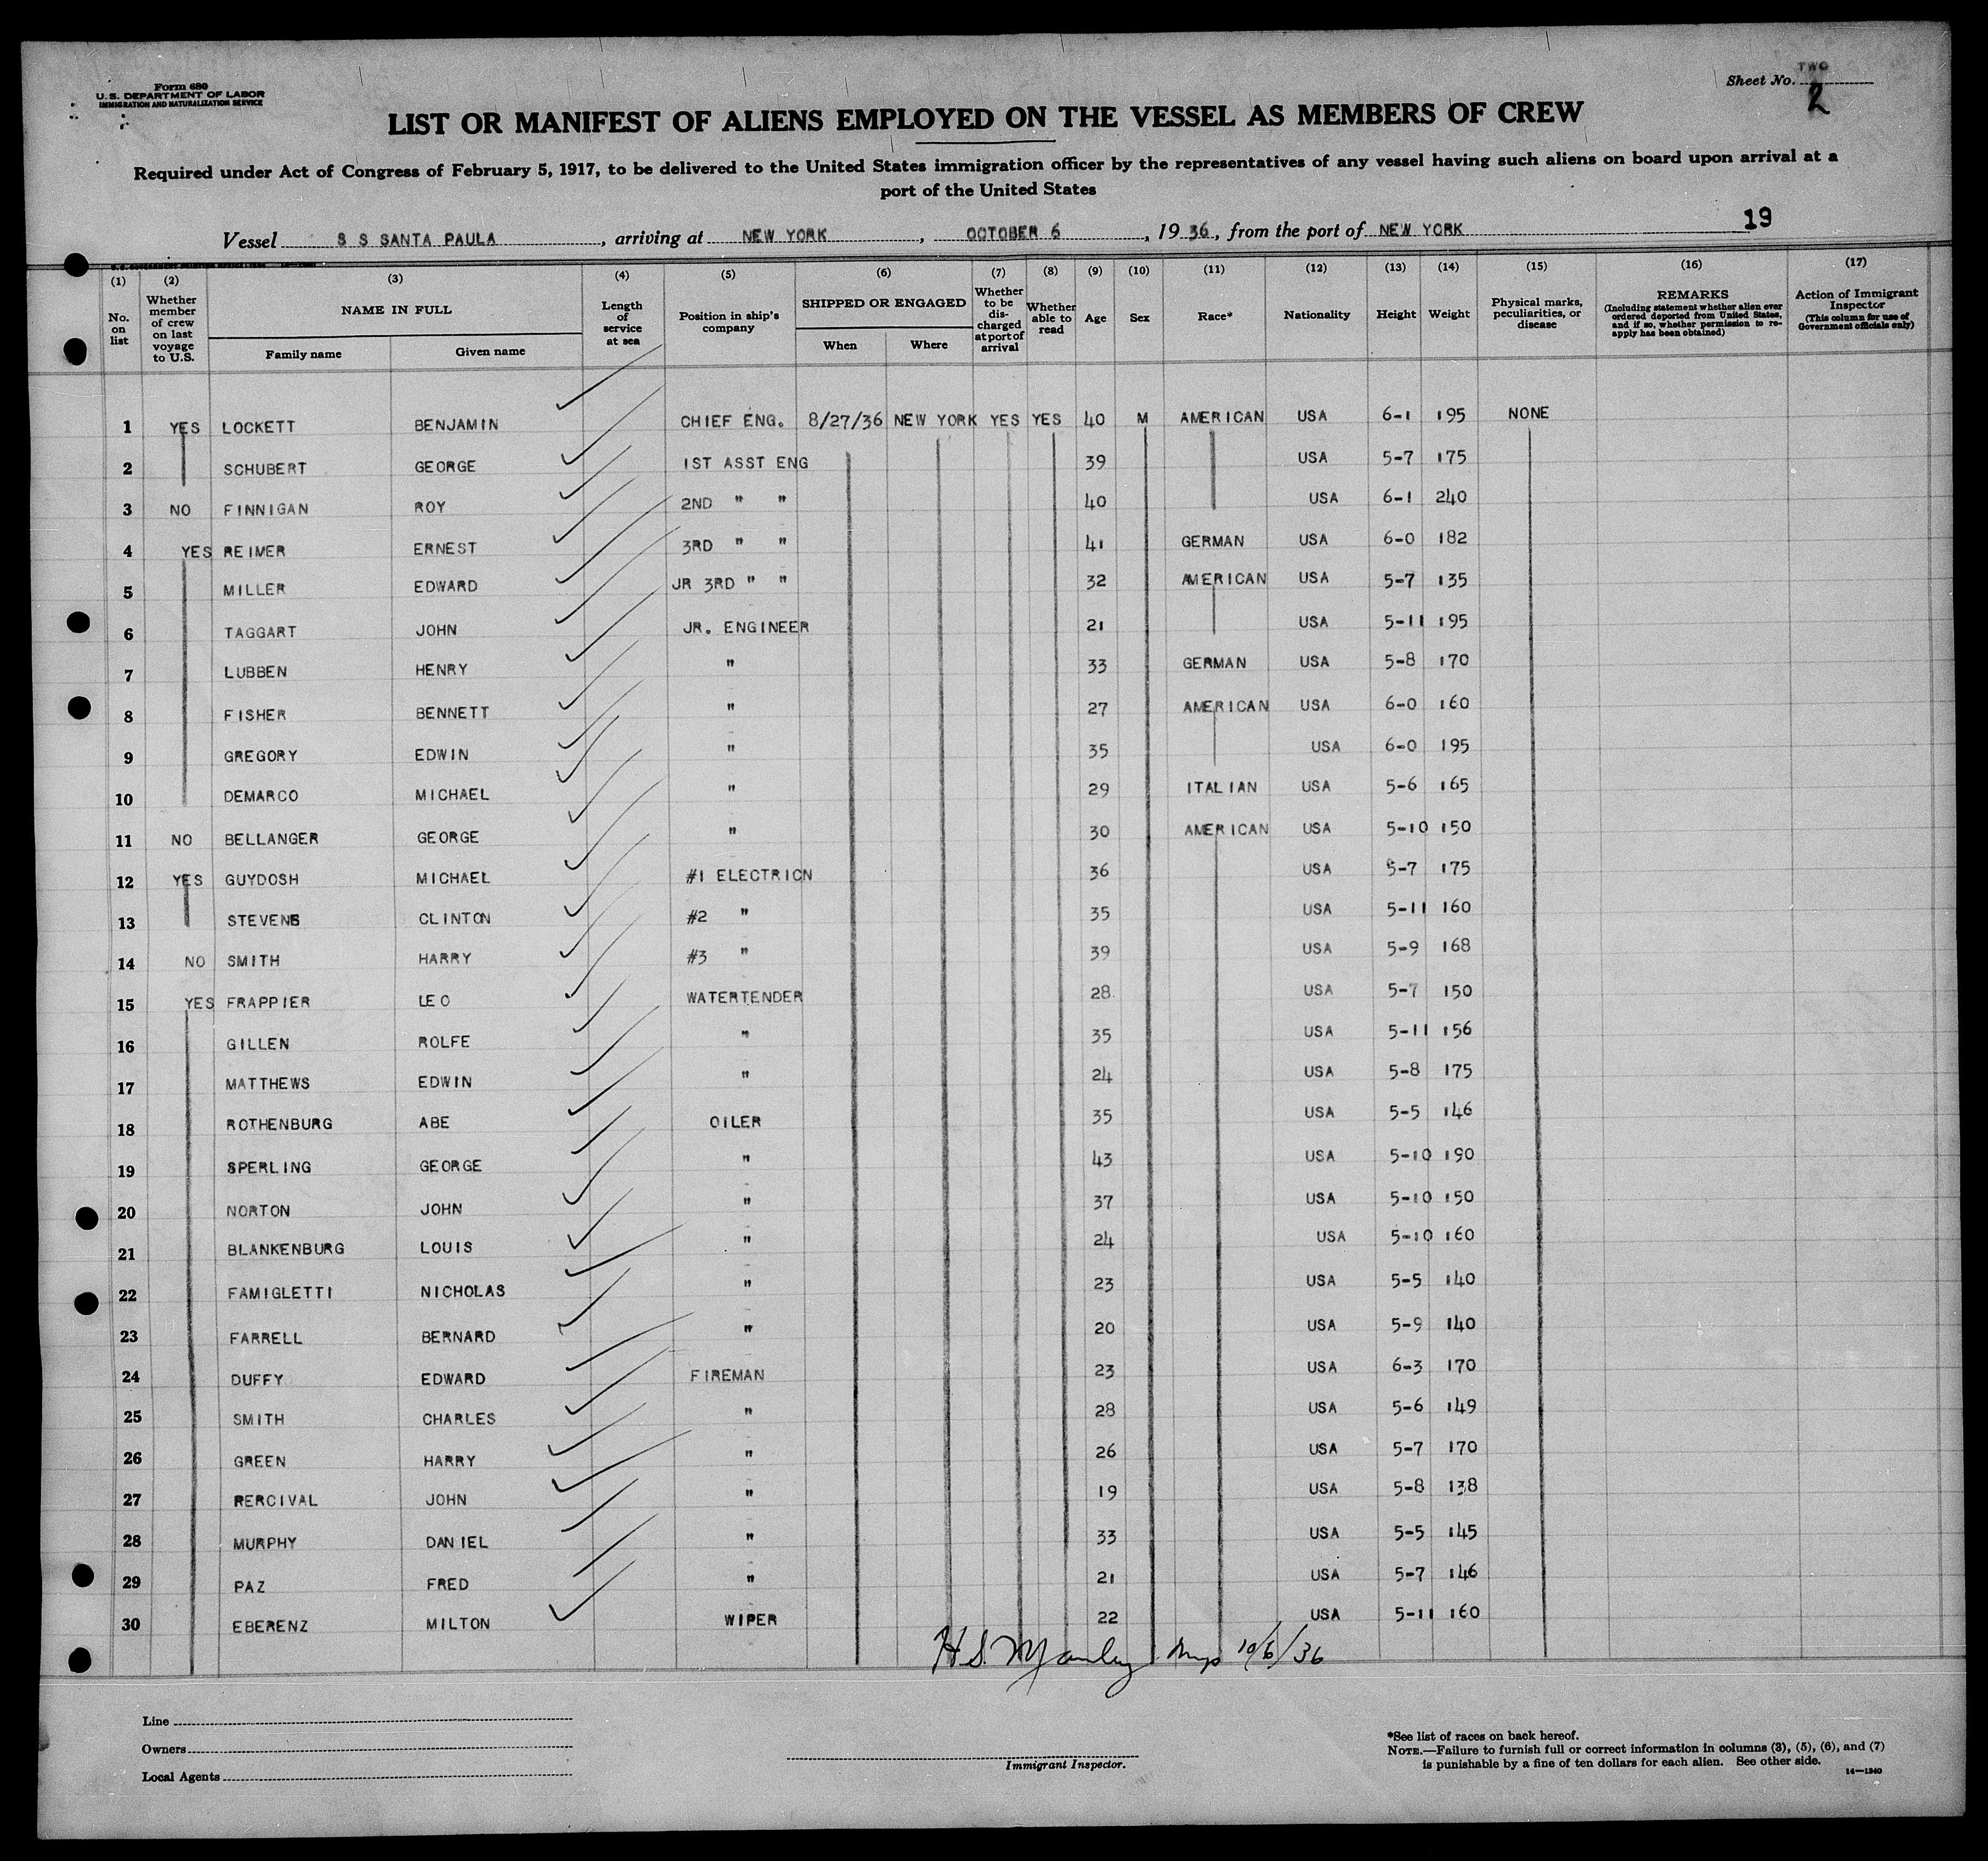 Form 680
U.S. DEPARTMENT OF LABOR
IMMIGRATION AND NATURALIZATION SERVICE
Sheet No. TWO
2
LIST OR MANIFEST OF ALIENS EMPLOYED ON THE VESSEL AS MEMBERS OF CREW
Required under Act of Congress of February 5, 1917, to be delivered to the United States immigration officer by the representatives of any vessel having such aliens on board upon arrival at a
port of the United States
19
Vessel S S SANTA PAULA, arriving at NEW YORK, OCTOBER 6, 1936, from the port of NEW YORK
(1) (2) (3) (4) (5) (6) (7) (8) (9) (10) (11) (12) (13) (14) (15) (16) (17)
No. on list
Whether member of crew on last voyage to U.S.
NAME IN FULL
Family name Given name
Length of service at sea
Position in ship's company
SHIPPED OR ENGAGED
When Where
Whether to be discharged at port of arrival
Whether able to read
Age
Sex
Race*
Nationality
Height
Weight
Physical marks, peculiarities, or disease
REMARKS
(Including statement whether alien ever ordered deported from United States, and if so, whether permission to reapply has been obtained)
Action of Immigrant Inspector
(This column for use of Government officials only)
1 YES LOCKETT BENJAMIN CHIEF ENG. 8/27/36 NEW YORK YES YES 40 M AMERICAN USA 6-1 195 NONE
2 SCHUBERT GEORGE 1ST ASST ENG 39 USA 5-7 175
3 NO FINNIGAN ROY 2ND " " 40 USA 6-1 240
4 YES REIMER ERNEST 3RD " " 41 GERMAN USA 6-0 182
5 MILLER EDWARD JR 3RD " " 32 AMERICAN USA 5-7 135
6 TAGGART JOHN JR. ENGINEER 21 USA 5-11 195
7 LUBBEN HENRY " 33 GERMAN USA 5-8 170
8 FISHER BENNETT " 27 AMERICAN USA 6-0 160
9 GREGORY EDWIN " 35 USA 6-0 195
10 DEMARCO MICHAEL " 29 ITALIAN USA 5-6 165
11 NO BELLANGER GEORGE " 30 AMERICAN USA 5-10 150
12 YES GUYDOSH MICHAEL #1 ELECTRICN 36 USA 5-7 175
13 STEVENS CLINTON #2 " 35 USA 5-11 160
14 NO SMITH HARRY #3 " 39 USA 5-9 168
15 YES FRAPPIER LEO WATERTENDER 28 USA 5-7 150
16 GILLEN ROLFE " 35 USA 5-11 156
17 MATTHEWS EDWIN " 24 USA 5-8 175
18 ROTHENBURG ABE OILER 35 USA 5-5 146
19 SPERLING GEORGE " 43 USA 5-10 190
20 NORTON JOHN " 37 USA 5-10 150
21 BLANKENBURG LOUIS " 24 USA 5-10 160
22 FAMIGLETTI NICHOLAS " 23 USA 5-5 140
23 FARRELL BERNARD " 20 USA 5-9 140
24 DUFFY EDWARD FIREMAN 23 USA 6-3 170
25 SMITH CHARLES " 28 USA 5-6 149
26 GREEN HARRY " 26 USA 5-7 170
27 RERCIVAL JOHN " 19 USA 5-8 138
28 MURPHY DANIEL " 33 USA 5-5 145
29 PAZ FRED " 21 USA 5-7 146
30 EBERENZ MILTON WIPER 22 USA 5-11 160
H S Manley 10/6/36
Line
Owners
Local Agents
Immigrant Inspector.
*See list of races on back hereof.
NOTE.—Failure to furnish full or correct information in columns (3), (5), (6), and (7)
is punishable by a fine of ten dollars for each alien. See other side.
14—1240